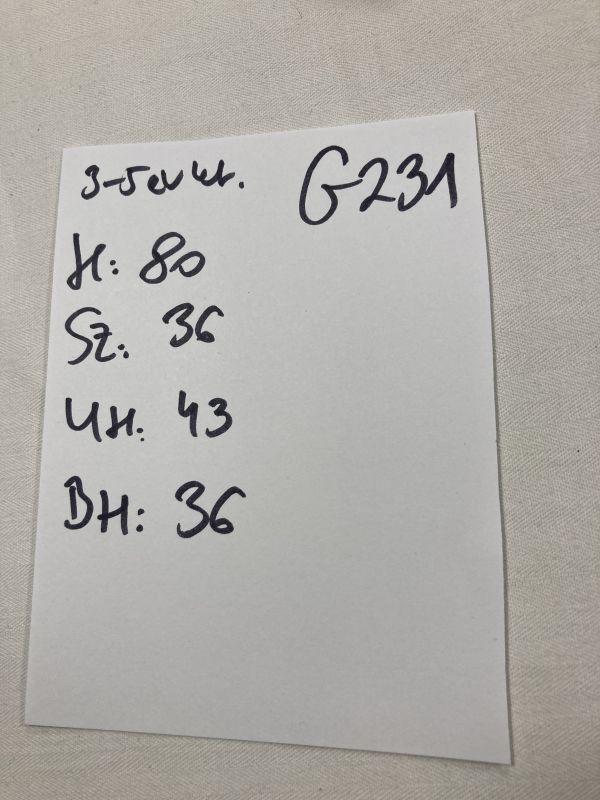 3-5 év kt. G231
H: 80
Sz: 36
UH: 43
BH: 36